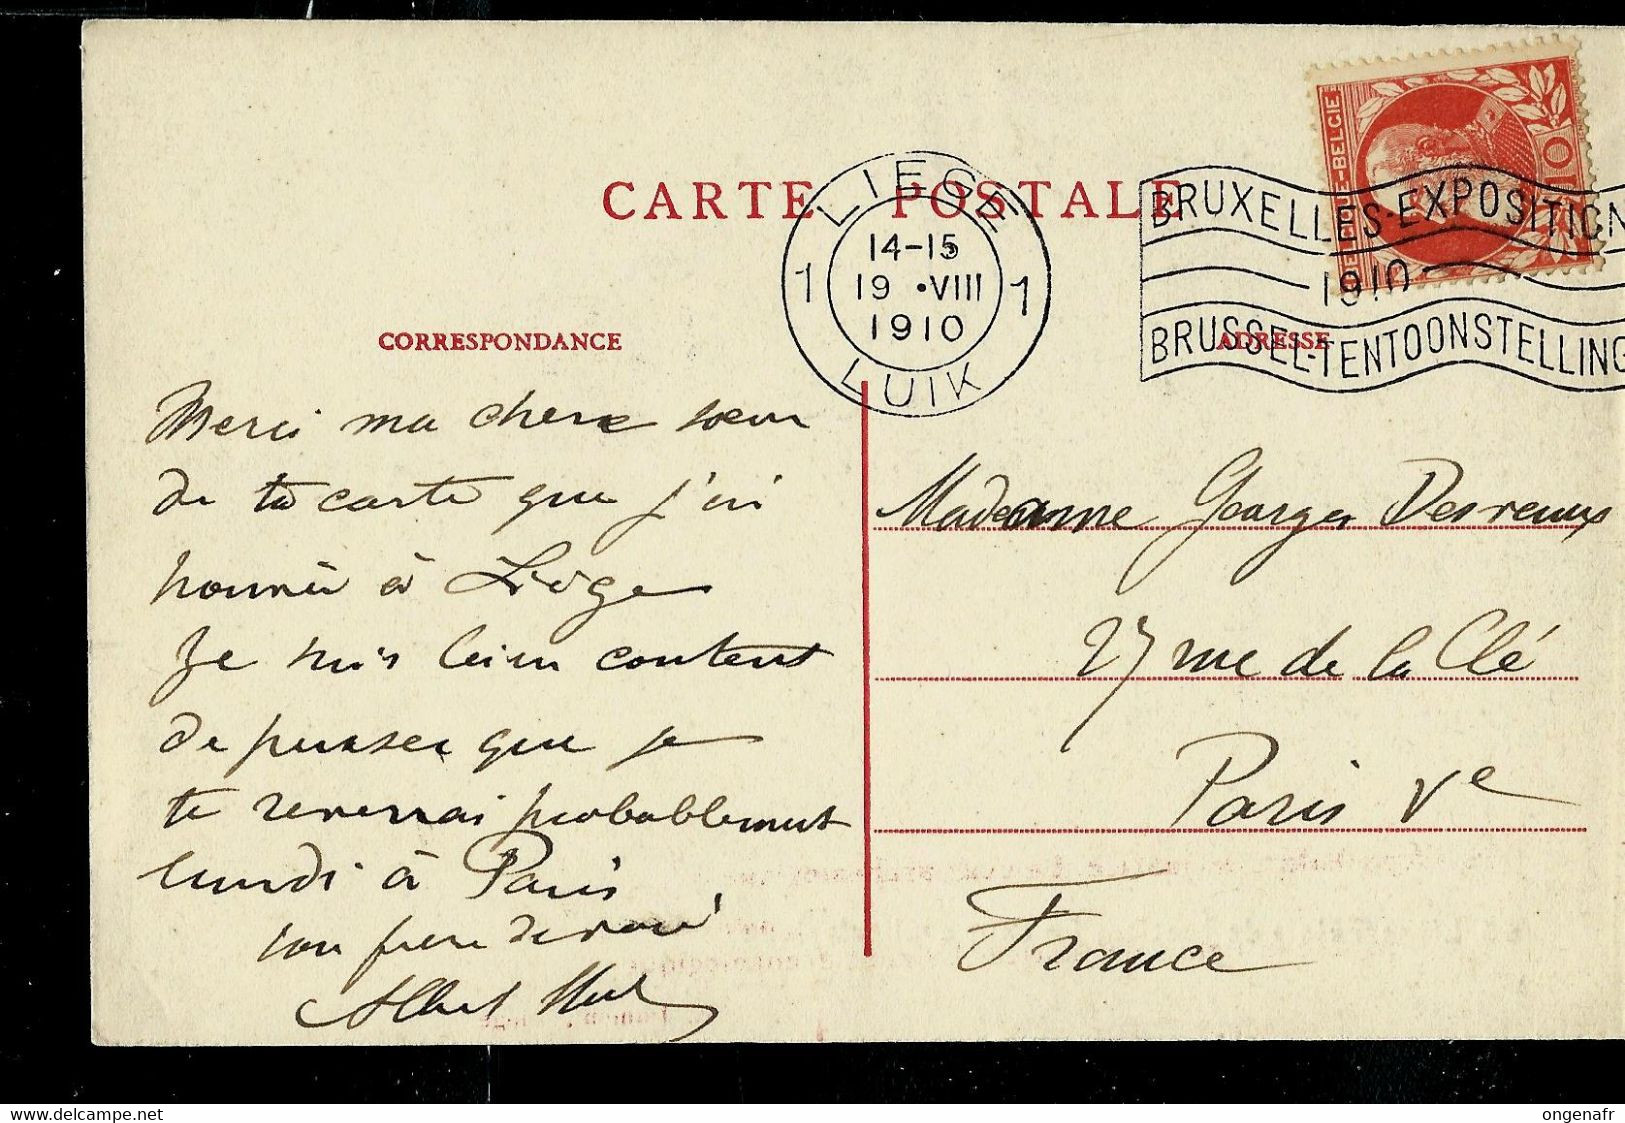 CARTE POSTALE
LIEGE
14-15
1 19 •VIII 1
1910
LUIK
BELGIQUE-BELGIE
10
BRUXELLES-EXPOSITION
1910
BRUSSEL-TENTOONSTELLING
CORRESPONDANCE
ADRESSE
Merci ma chere soeur
de ta carte que j'ai
à Liège
Je suis bien content
de penser que je
te reverrai probablement
lundi à Paris
ton frere devoué
Albert
Madame Georges Desreux
27 rue de la Clé
Paris Ve
France
www.delcampe.net
ongenafr